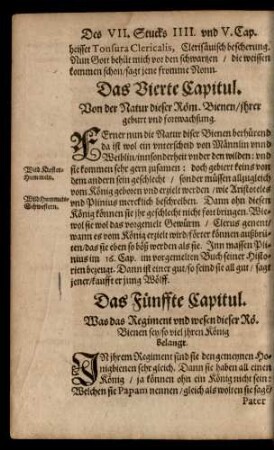 Des VII. Stucks IIII. vnd V. Cap.
heisset Tonsura Clericalis, Clerisäuisch bescherung.
Nun Gott behüt mich vor den schwartzen / die weissen
kommen schon / sagt jene fromme Nonn.
Das Vierte Capitul.
Von der Natur dieser Röm. Bienen / jhrer
geburt vnd fortwachsung.
FErner nun die Natur diser Bienen berhürend
da ist wol ein vnterscheid von Männlin vnnd
Weiblin / innsonderheit vnder den wilden : vnd
Wild Kloster-
Hummeln.
sie kommen sehr gern zusammen : doch gebiert keins von
dem andern sein geschlecht / sonder müssen allzugleich
vom König geboren vnd erzielt werden / wie Aristoteles
Wild Hummels-
Schwestern.
vnd Plinius mercklich beschreiben. Dann ohn diesen
König können sie jhr geschlecht nicht fortbringen. Wie-
wol sie wol das vorgemelt Gewürm / Clerus genent /
wann es vom König erzielt wird / förter können außbrü-
ten / das sie eben so böß werden als sie. Inn massen Pli-
nius im 16. Cap. im vorgemelten Buch seiner Histo-
rien bezeugt. Dann ist einer gut / so seind sie all gut / sagt
jener / kaufft er jung Wölff.
Das Fünffte Capitul.
Was das Regiment vnd wesen dieser Rö.
Bienen sey / so viel jhren König
belangt.
IN jhrem Regiment sind sie den gemeynen Ho-
nigbienen sehr gleich. Dann sie haben all einen
König / ja können ohn ein König nicht sein:
Welchen sie Papam nennen / gleich als wolten sie sagē /
Pater